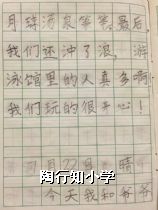 月珠汤泉等等,最后,
我们还冲了浪,游
泳馆里的人真多啊!
我们玩的很开心!
月22日 晴
陶行知小学
今天我和爷爷